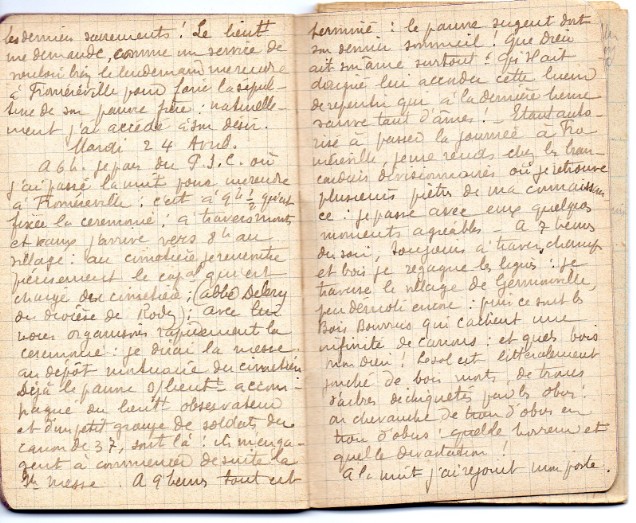 les derniers sacrements ! Le lieutt
me demande, comme un service de
vouloir bien le lendemain me rendre
à Froméréville pour faire la sépul-
ture de son pauvre frère : naturelle-
ment j'ai accédé à son désir.
Mardi 24 Avril.
A 6h. je pars du P.J.C. où
j'ai passé la nuit pour me rendre
à Froméréville : c'est à 9h ½ qu'est
fixée la cérémonie : à travers monts
et vaux j'arrive vers 8h au
village : au cimetière je rencontre
précisément le capal qui est
chargé du cimetière ; (abbé Delery
du diocèse de Rodez) ; avec lui
nous organisons rapidement la
cérémonie : je dirai la messe
au dépôt mortuaire du cimetière
Déjà le pauvre s/lieutt accom-
pagné du lieutt observateur
et d'un petit groupe de soldats du
canon de 37, sont là : ils m'enga-
gent à commencer de suite la
Ste messe. A 9 heures tout est
terminé : le pauvre sergent dort
son dernier sommeil ! Que Dieu
ait son âme surtout ! Qu'Il ait
daigné lui accorder cette lueur
de repentir qui à la dernière heure
sauve tant d'âmes ! - Etant auto-
risé à passer la journée à Fro-
méréville, je me rends chez les bran-
cardiers divisionnaires où je retrouve
plusieurs prêtres de ma connaissan
ce : je passe avec eux quelques
moments agréables - A 7 heures
du soir, toujours à travers champs
et bois je regagne les lignes : je
traverse le village de Germonville,
peu démoli encore : puis ce sont les
Bois Bourrus qui cachent une
infinité de canons : et quels bois
mon Dieu ! Le sol est littéralement
jonché de bois morts, de troncs
d'arbres déchiquetés par les obus :
on chevauche de trou d'obus en
trou d'obus : quelle horreur et
quelle dévastation !
A la nuit j'ai rejoint mon poste.